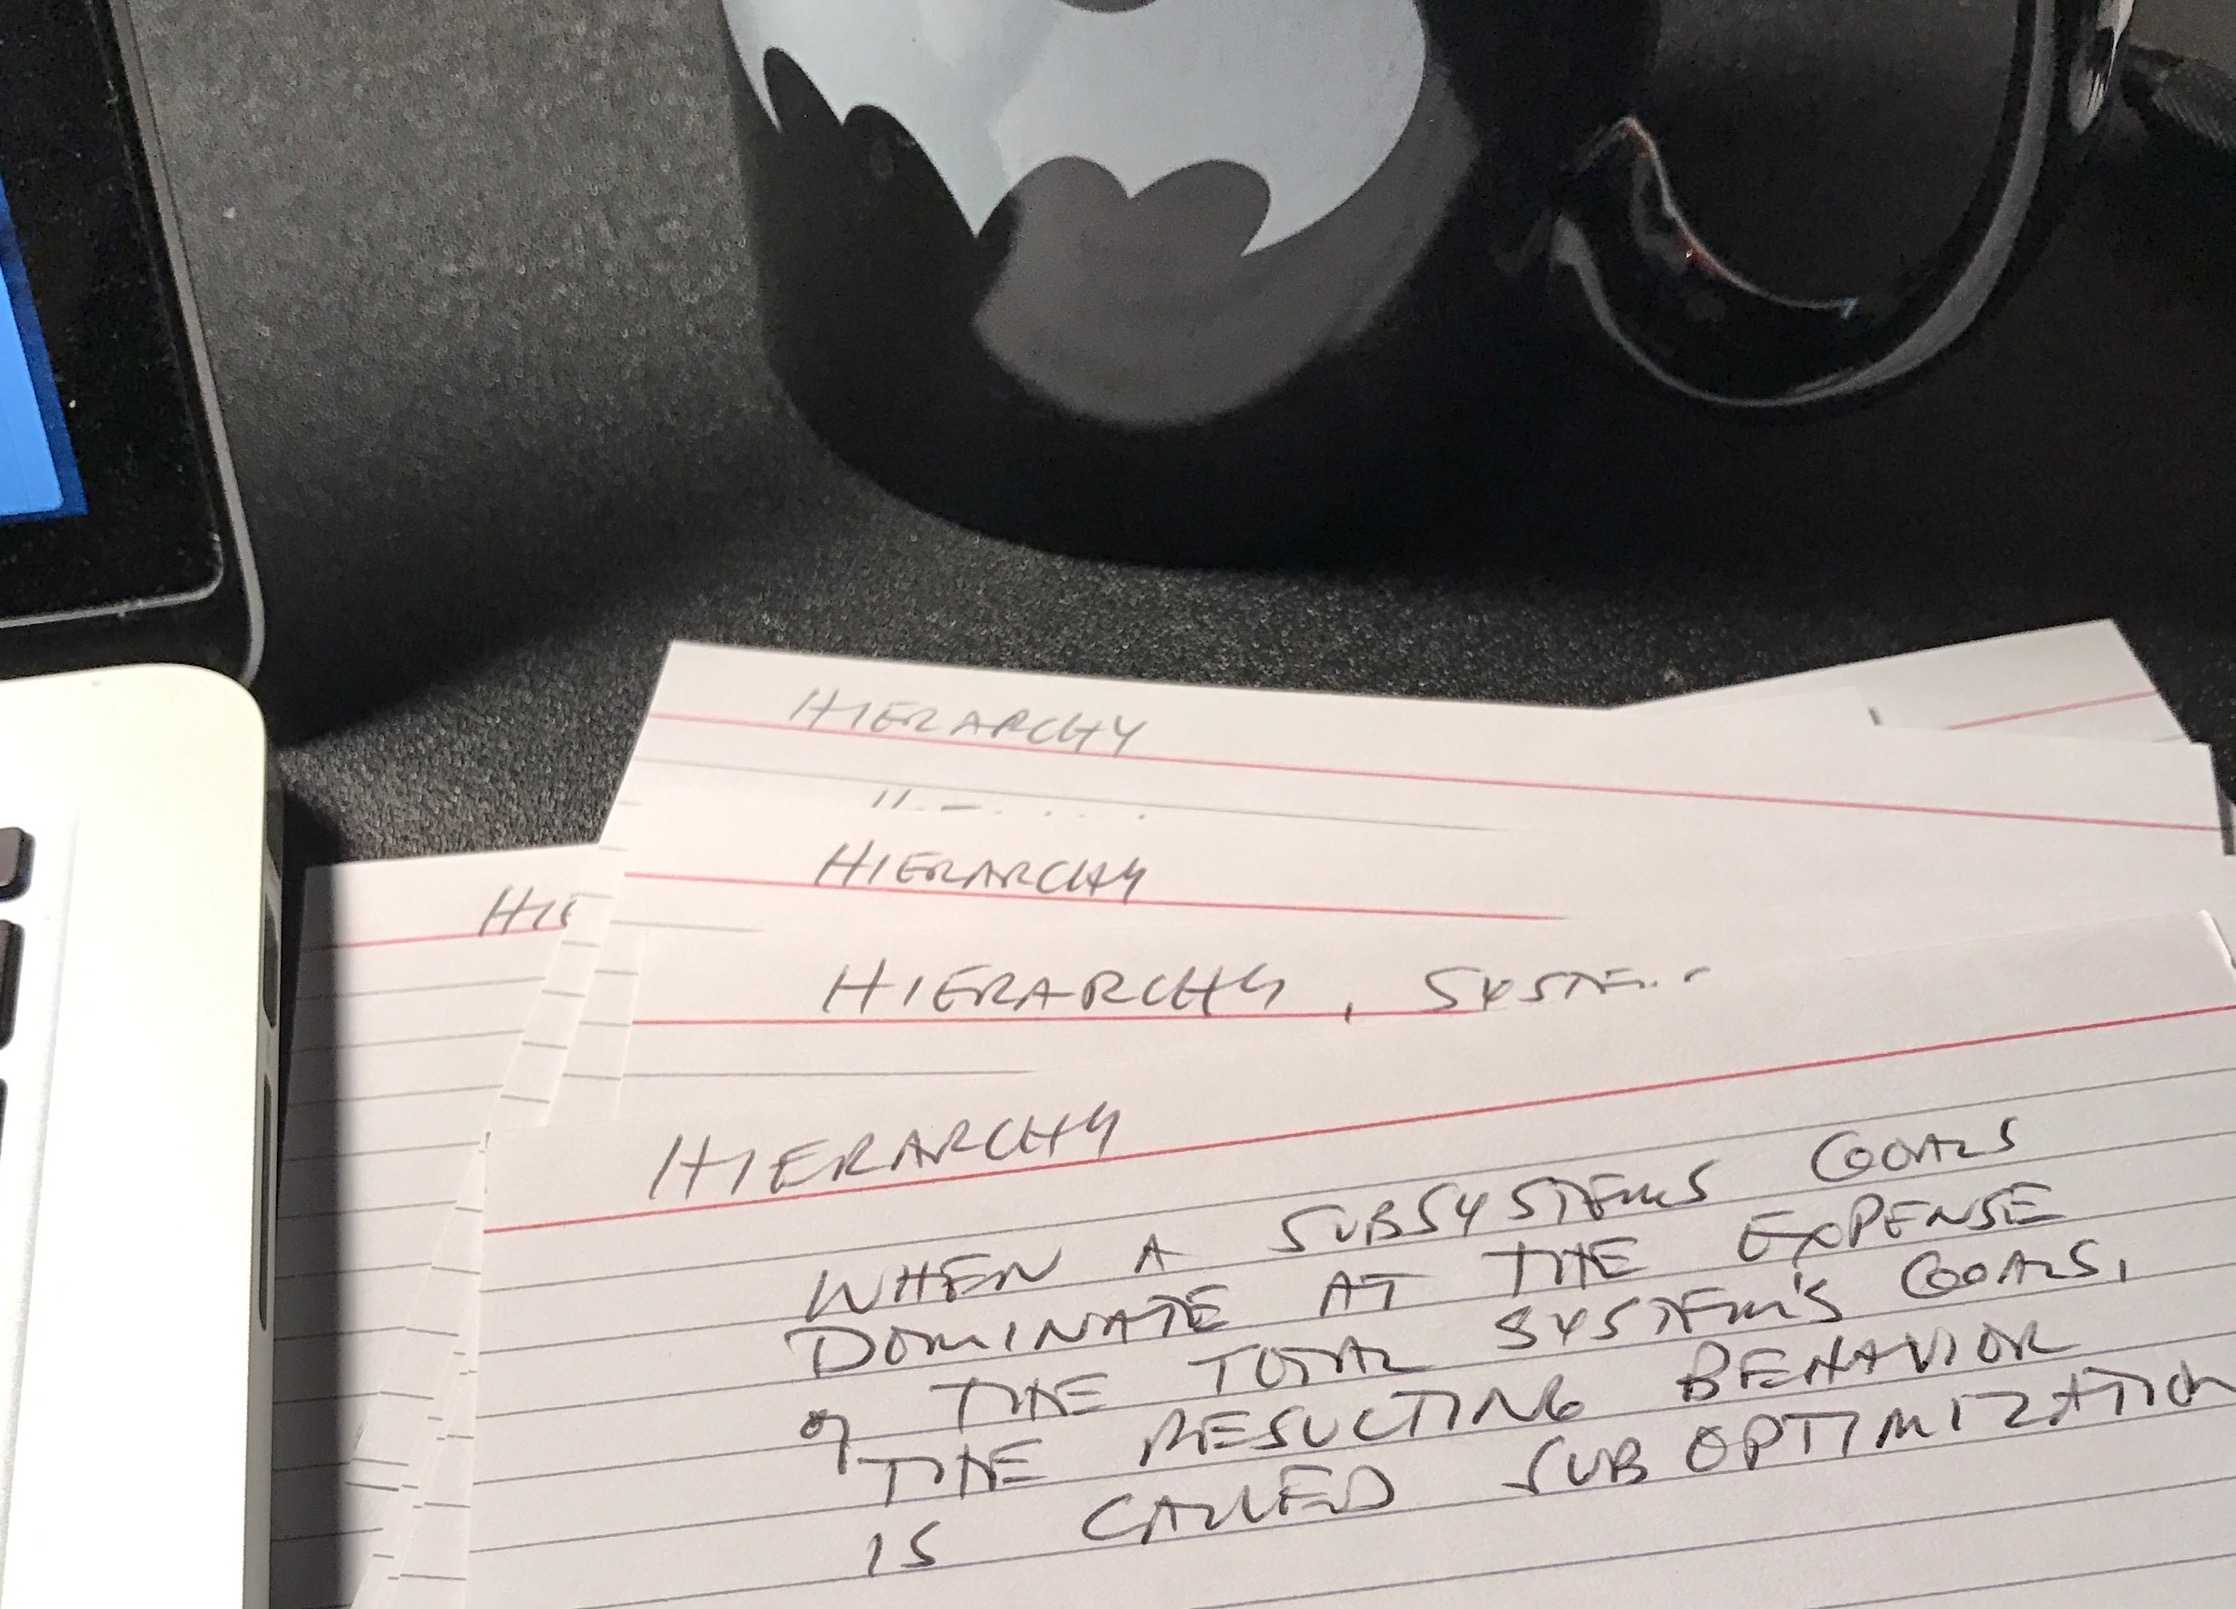 HIERARCHY
HIERARCHY
HIE
HIERARCHY, SYSTE
HIERARCHY
WHEN A SUBSYSTEMS GOALS
DOMINATE AT THE EXPENSE
OF THE TOTAL SYSTEM'S GOALS,
THE RESULTING BEHAVIOR
IS CALLED SUBOPTIMIZATION